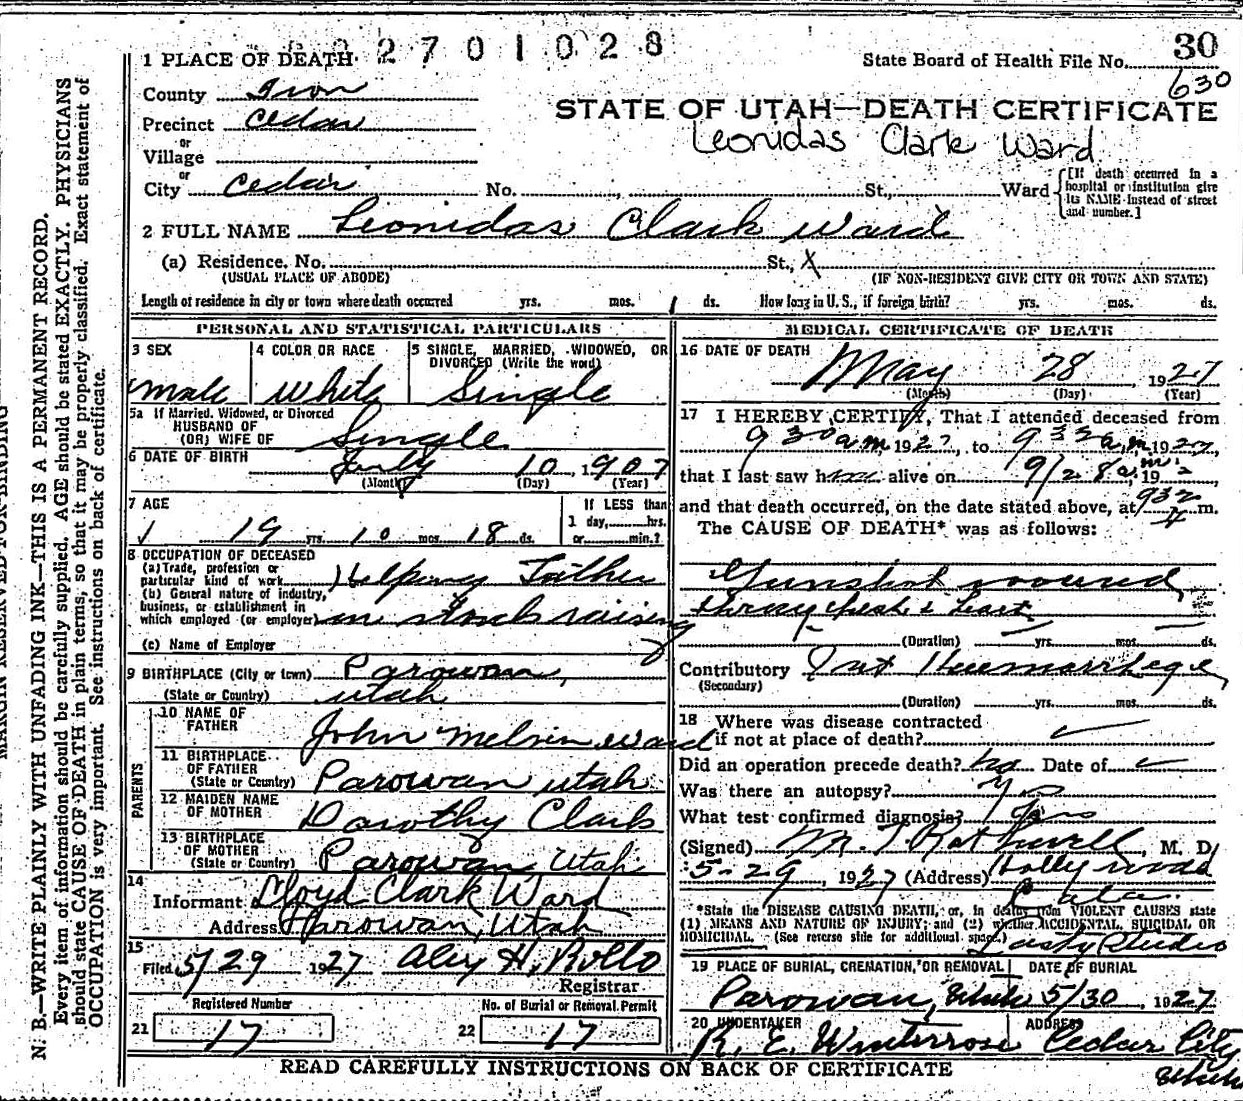 2701028
30
1 PLACE OF DEATH
State Board of Health File No.
630
County Iron
STATE OF UTAH—DEATH CERTIFICATE
Precinct Cedar
Leonidas Clark Ward
or
Village
or
City Cedar No. , St., Ward
[If death occurred in a hospital or institution give its NAME instead of street and number.]
2 FULL NAME Leonidas Clark Ward
(a) Residence. No. St., X
(USUAL PLACE OF ABODE) (IF NON-RESIDENT GIVE CITY OR TOWN AND STATE)
Length of residence in city or town where death occurred yrs. mos. 1 ds. How long in U. S., if foreign birth? yrs. mos. ds.
PERSONAL AND STATISTICAL PARTICULARS
3 SEX
Male
4 COLOR OR RACE
White
5 SINGLE, MARRIED, WIDOWED, OR
DIVORCED (Write the word)
Single
5a If Married, Widowed, or Divorced
HUSBAND OF
(OR) WIFE OF Single
6 DATE OF BIRTH July 10, 1907
(Month) (Day) (Year)
7 AGE
19 yrs. 10 mos. 18 ds.
If LESS than
1 day, hrs.
or min.?
8 OCCUPATION OF DECEASED
(a) Trade, profession or
particular kind of work Helping Father
(b) General nature of industry,
business, or establishment in
which employed (or employer) in stock raising
(c) Name of Employer
9 BIRTHPLACE (City or town) Parowan,
(State or Country) Utah
PARENTS
10 NAME OF
FATHER John Melvin Ward
11 BIRTHPLACE
OF FATHER
(State or Country) Parowan Utah
12 MAIDEN NAME
OF MOTHER Dorothy Clark
13 BIRTHPLACE
OF MOTHER
(State or Country) Parowan Utah
14
Informant Lloyd Clark Ward
Address Parowan, Utah
15
Filed 5/29 1927 Aley H. Rollo
Registrar
Registered Number
21 17
No. of Burial or Removal Permit
22 17
MEDICAL CERTIFICATE OF DEATH
16 DATE OF DEATH
May 28, 1927
(Month) (Day) (Year)
17 I HEREBY CERTIFY, That I attended deceased from
9 30 a m 1927, to 9 32 a.m. 1927,
that I last saw him alive on 9/28 a.m., 19
and that death occurred, on the date stated above, at 9 32 m.
The CAUSE OF DEATH* was as follows:
Gunshot wound
thray chest & heart
(Duration) yrs. mos. ds.
Contributory Int Heemorrhege
(Secondary)
(Duration) yrs. mos. ds.
18 Where was disease contracted
if not at place of death?
Did an operation precede death? no Date of
Was there an autopsy? Yes
What test confirmed diagnosis?
(Signed) M. T. Rathwell, M. D.
5-29, 1927 (Address) Hollywood
Cala.
*State the DISEASE CAUSING DEATH, or, in deaths from VIOLENT CAUSES state
(1) MEANS AND NATURE OF INJURY; and (2) whether ACCIDENTAL, SUICIDAL OR
HOMICIDAL. (See reverse side for additional space.) Lasky Studio
19 PLACE OF BURIAL, CREMATION, OR REMOVAL DATE OF BURIAL
Parowan, Utah 5/30, 1927
20 UNDERTAKER ADDRESS
R. E. Winterrose Cedar City
Utah
READ CAREFULLY INSTRUCTIONS ON BACK OF CERTIFICATE
MARGIN RESERVED FOR BINDING
N. B.—WRITE PLAINLY WITH UNFADING INK—THIS IS A PERMANENT RECORD.
Every item of information should be carefully supplied. AGE should be stated EXACTLY. PHYSICIANS
should state CAUSE OF DEATH in plain terms, so that it may be properly classified. Exact statement of
OCCUPATION is very important. See instructions on back of certificate.